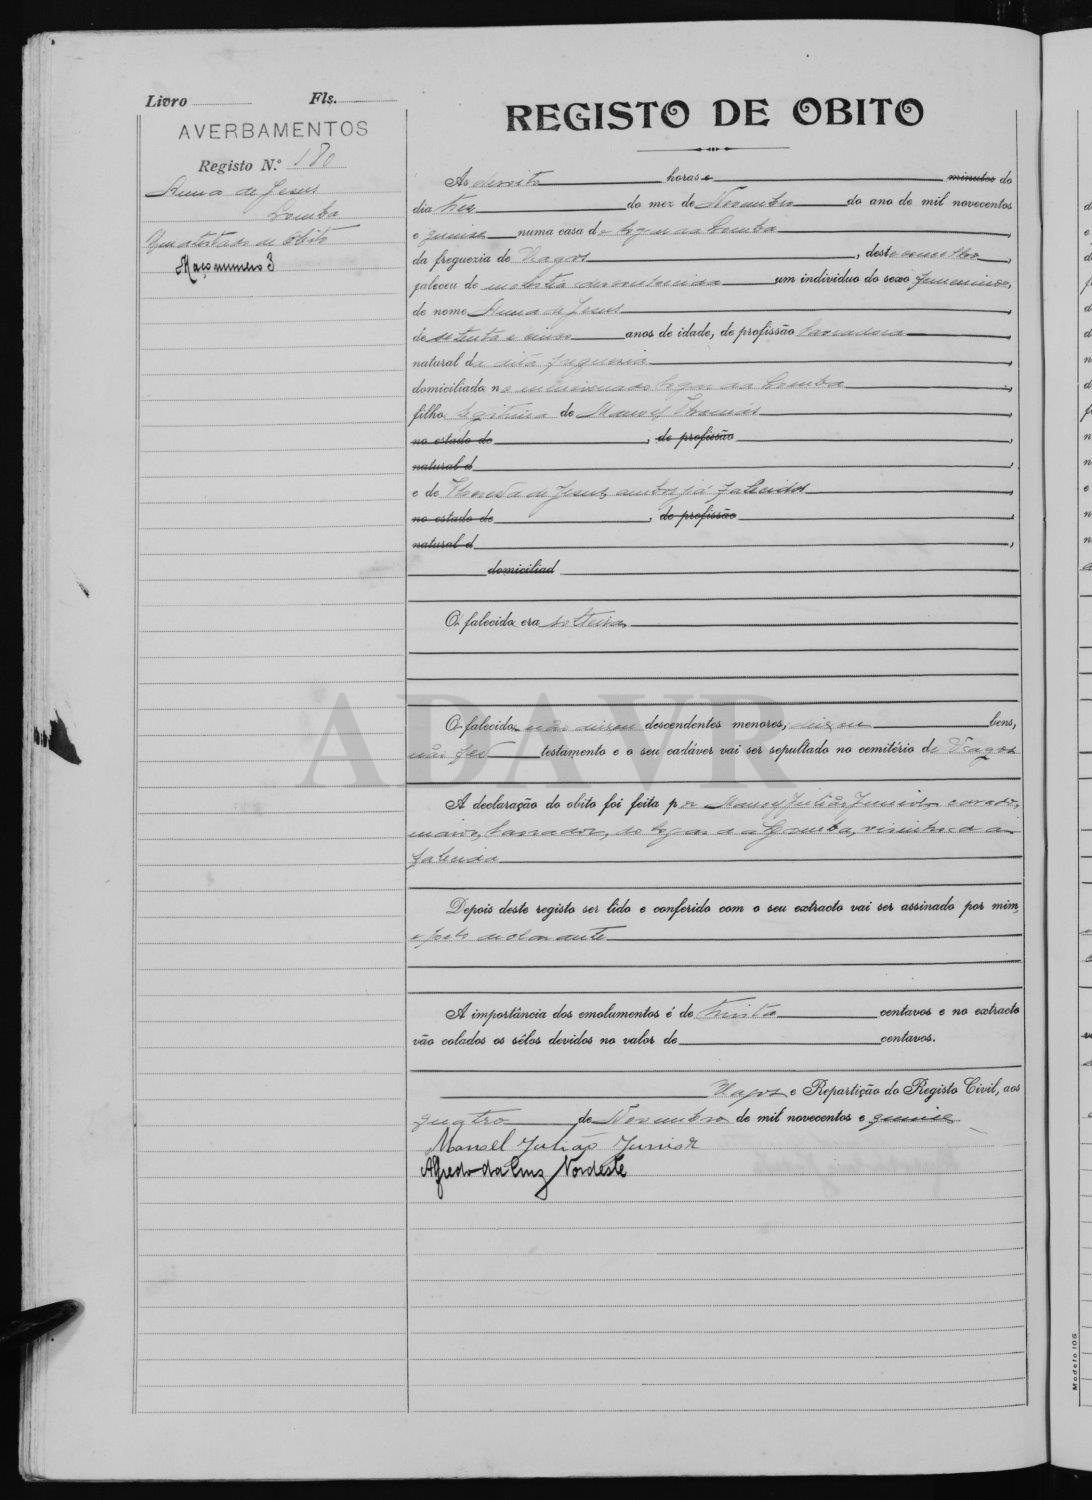 Livro Fls.
AVERBAMENTOS
Registo N.º 180
Anna de Jesus
Lomba
Um atestado de obito
Maço numero 3
REGISTO DE OBITO
As dezoito horas e minutos do
dia tres do mez de Novembro do ano de mil novecentos
e quinze numa casa do logar da Lomba
da freguezia de Vagos, deste concelho,
faleceu de molestia desconhecida um individuo do sexo femenino,
de nome Anna de Jesus
de setenta e cinco anos de idade, de profissão lavradora
natural da dita freguesia
domiciliada no mencionado logar da Lomba
filha legitima de Manoel Thomás
no estado de, de profissão
natural d
e de Thereza de Jesus, ambos já falecidos
no estado de, de profissão
natural d
domiciliad
A falecida era solteira
A falecida não deixou descendentes menores, deixou bens,
não fez testamento e o seu cadáver vai ser sepultado no cemitério de Vagos
A declaração do obito foi feita por Manoel Julião Junior, casado,
maior, lavrador, do logar da Lomba, visinho da
falecida
Depois deste registo ser lido e conferido com o seu extracto vai ser assinado por mim,
e pelo declarante
A importância dos emolumentos é de trinta centavos e no extracto
vão colados os sêlos devidos no valor de centavos.
Vagos e Repartição do Registo Civil, aos
quatro de Novembro de mil novecentos e quinze
Manoel Julião Junior
Alfredo da Cruz Nordeste
ADAVR
Modelo 105